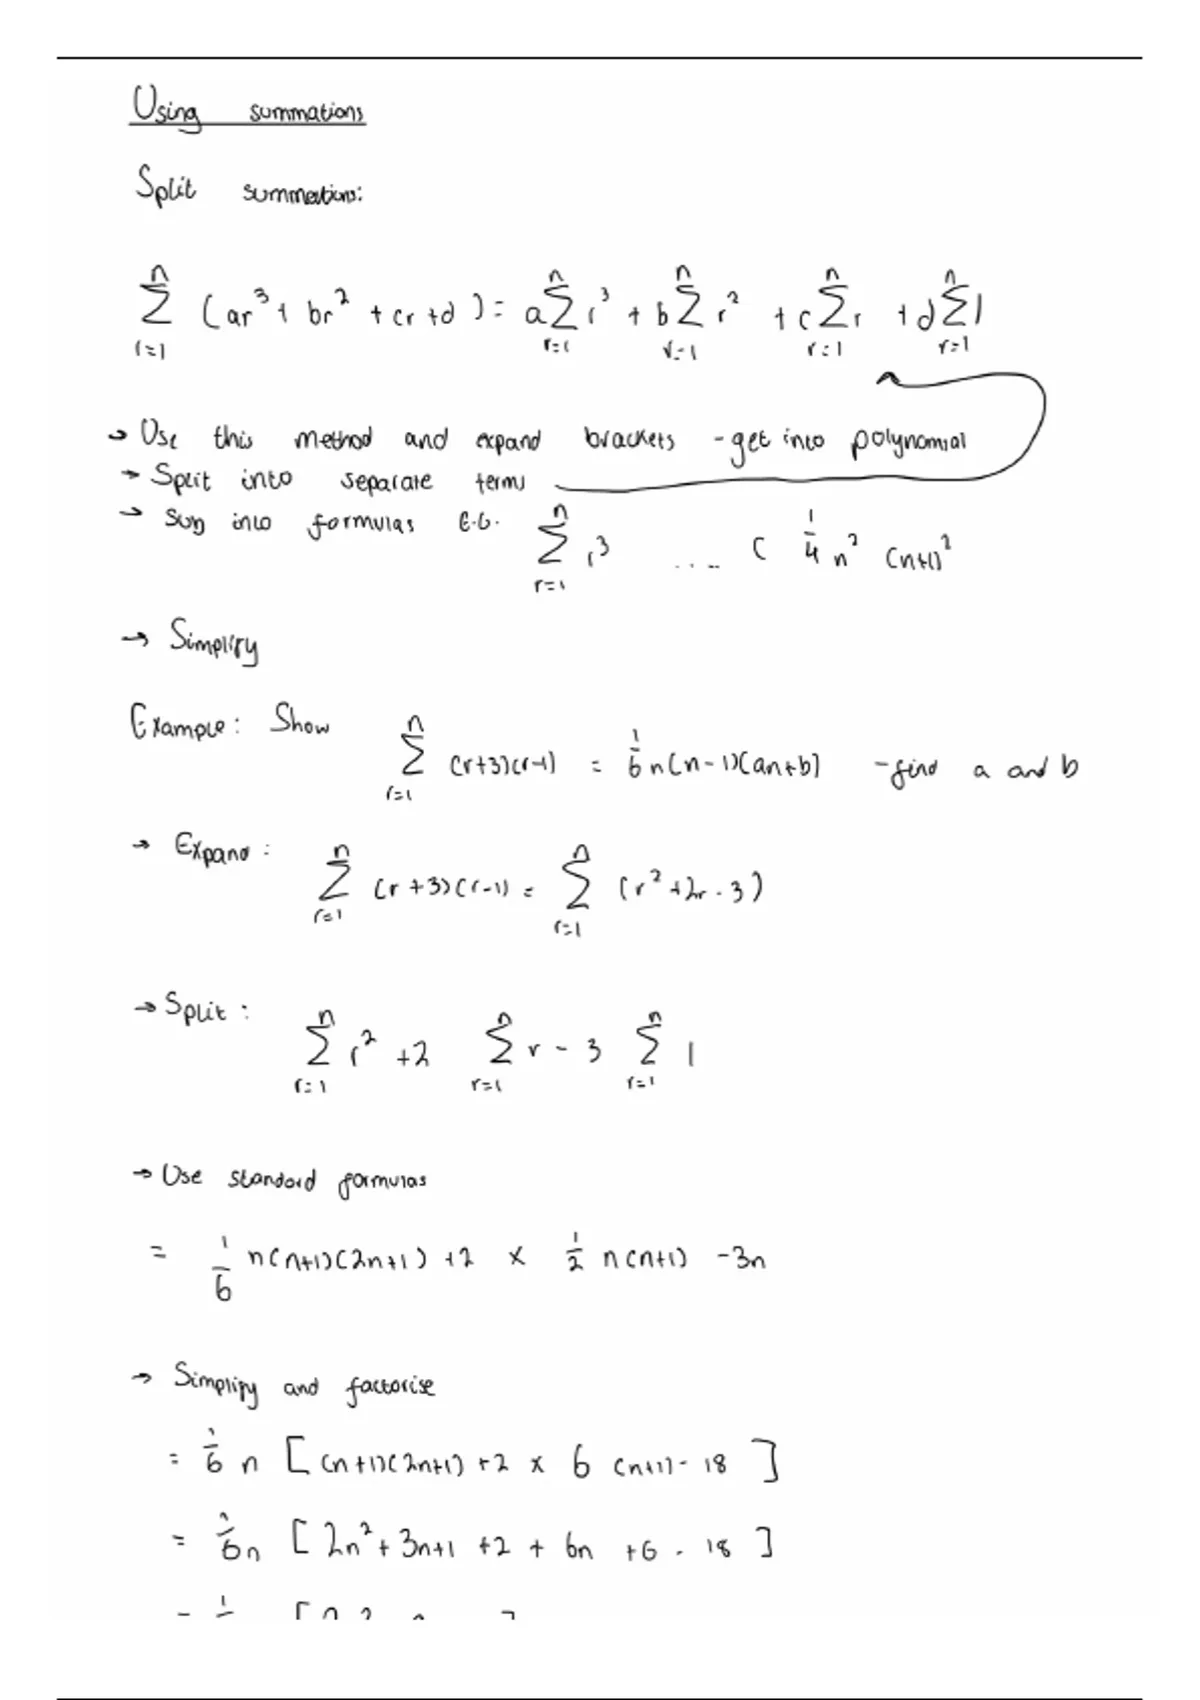 Using summations
Split summations:
n∑r=1 (ar³ + br² + cr + d) = a n∑r=1 r³ + b n∑r=1 r² + c n∑r=1 r + d n∑r=1 1
→ Use this method and expand brackets - get into polynomial
→ Split into separate terms
→ Sub into formulas E.G. n∑r=1 r³ ..... ( 1/4 n² (n+1)²
→ Simplify
Example: Show n∑r=1 (r+3)(r-1) = 1/6 n(n-1)(an+b) - find a and b
→ Expand: n∑r=1 (r+3)(r-1) = n∑r=1 (r² + 2r - 3)
→ Split: n∑r=1 r² + 2 n∑r=1 r - 3 n∑r=1 1
→ Use standard formulas
= 1/6 n(n+1)(2n+1) + 2 × 1/2 n(n+1) - 3n
→ Simplify and factorise
= 1/6 n [(n+1)(2n+1) + 2 × 6 (n+1) - 18]
= 1/6 n [2n² + 3n+1 + 2 + 6n + 6 - 18]